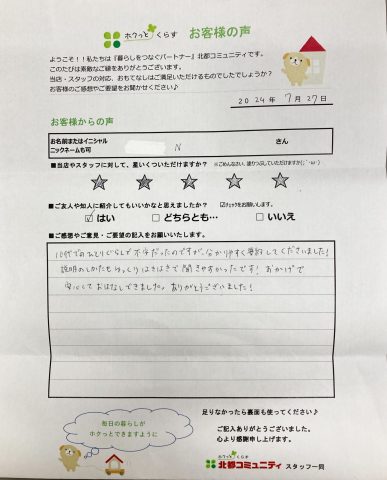 ホクっとくらす お客様の声
ようこそ！！私たちは『暮らしをつなぐパートナー』北都コミュニティです。
このたびは素敵なご縁をありがとうございます。
当店・スタッフの対応、おもてなしはご満足いただけるものでしたでしょうか？
お客様のご感想やご要望をお聞かせください♪
2024年 7月 27日
お客様からの声
お名前またはイニシャル
ニックネームも可
N さん
■当店やスタッフに対して、星いくつけますか？ ※ごめんなさい、塗りつぶしていただけますか(;´･ω･)
■ご友人や知人に紹介してもいいかなと思えましたか？ ☑チェックをお願いします。
☑はい □どちらとも… □いいえ
■ご感想やご意見・ご要望の記入をお願いします。
10代でのひとりぐらしで不安だったのですが、分かりやすく要約してくださいました！
説明のしかたもゆっくりはきはきで聞きやすかったです！おかげで
安心しておはなしできました。ありがとうございました！
足りなかったら裏面も使ってください♪
毎日の暮らしが
ホクっとできますように
ご記入ありがとうございました。
心より感謝申し上げます。
ホクっとくらす
北都コミュニティ スタッフ一同